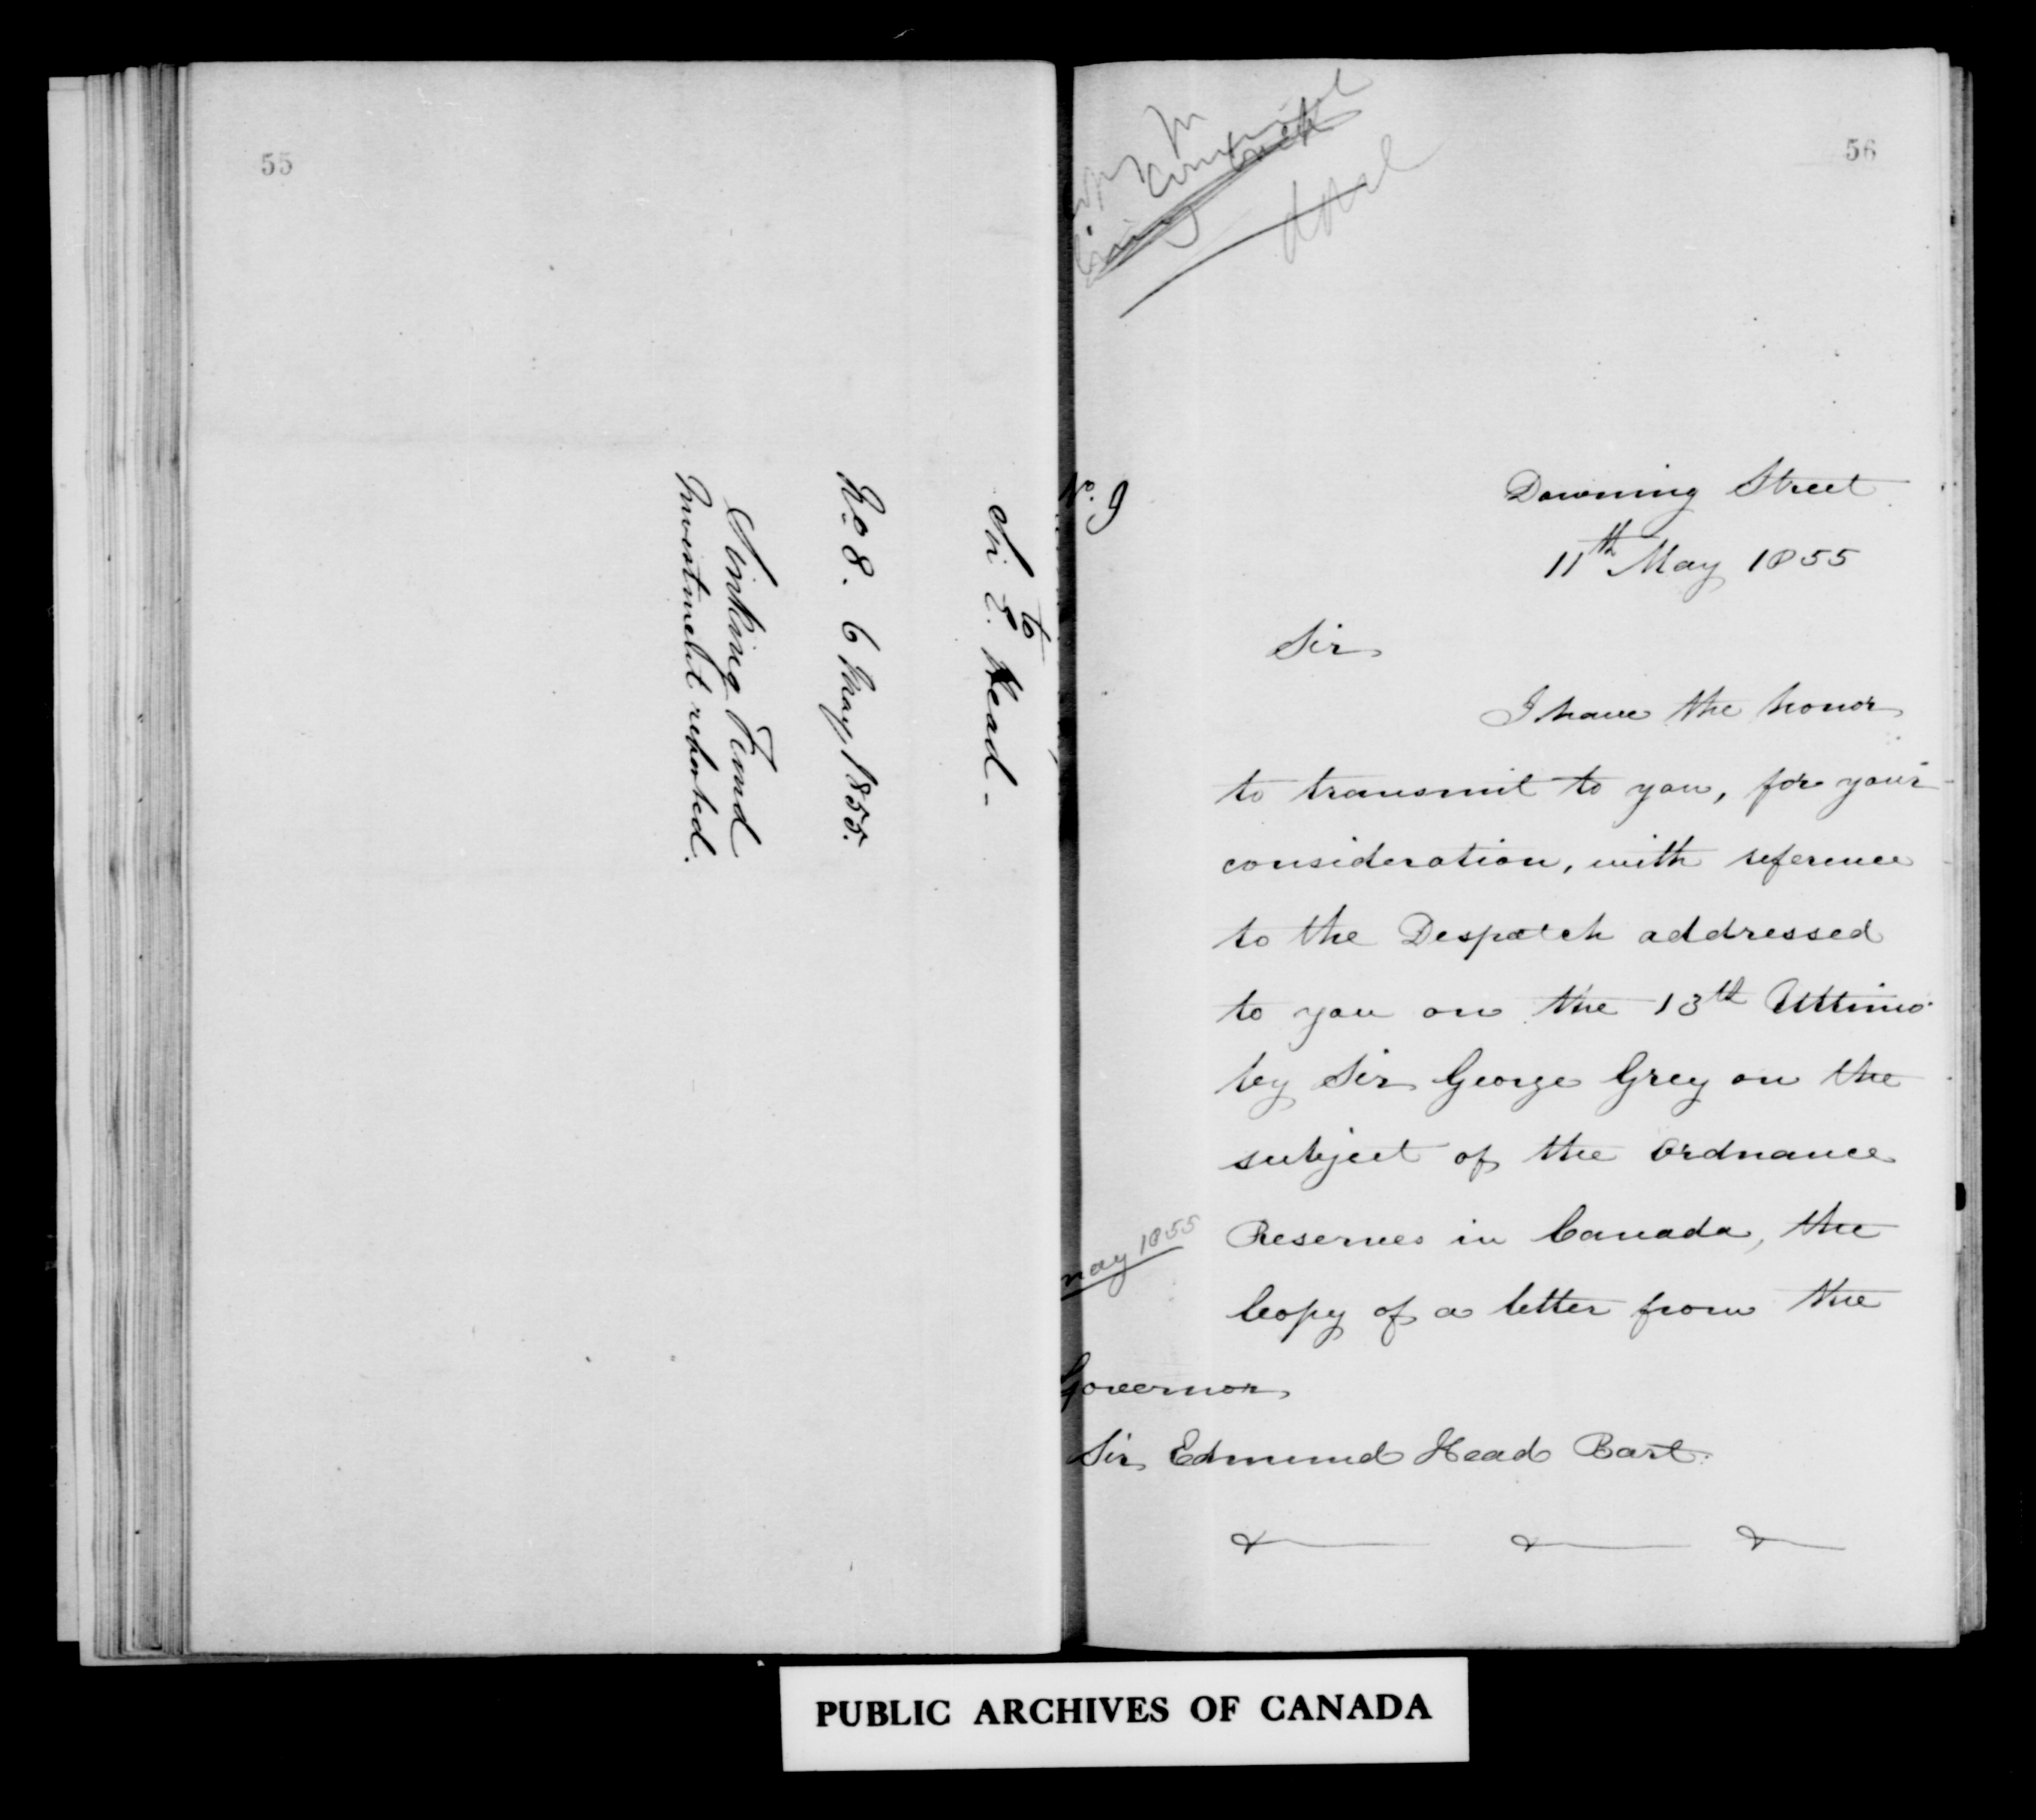 55
to
Sir E. Head -
No 8. 6 May 1855.
Sinking Fund
Investment reported.
56
No. 9
Downing Street
11th May 1855
Sir
I have the honor
to transmit to you, for your
consideration, with reference
to the Despatch addressed
to you on the 13th Ultimo
by Sir George Grey on the
subject of the Ordnance
Reserves in Canada, the
May 1855
Copy of a letter from the
Governor
Sir Edmund Head Bart.
PUBLIC ARCHIVES OF CANADA